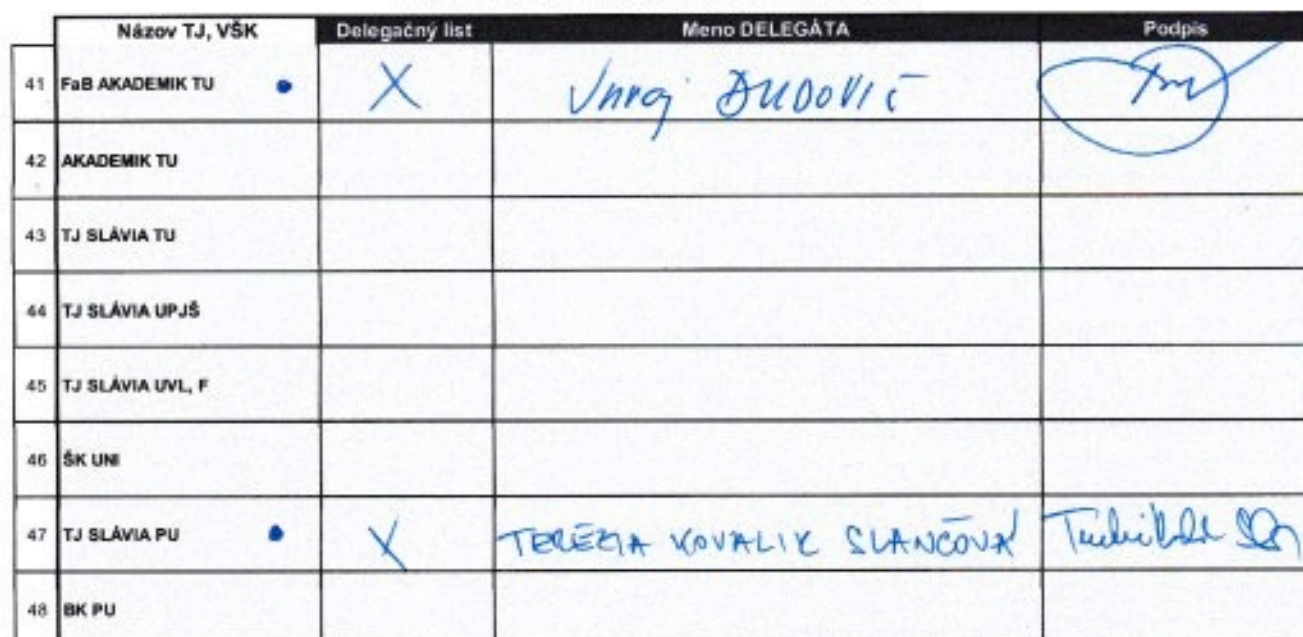 Názov TJ, VŠK Delegačný list Meno DELEGÁTA Podpis
41 FaB AKADEMIK TU X Juraj DUDOVIČ
42 AKADEMIK TU
43 TJ SLÁVIA TU
44 TJ SLÁVIA UPJŠ
45 TJ SLÁVIA UVL, F
46 ŠK UNI
47 TJ SLÁVIA PU X TERÉZIA KOVALIK SLANČOVÁ
48 BK PU